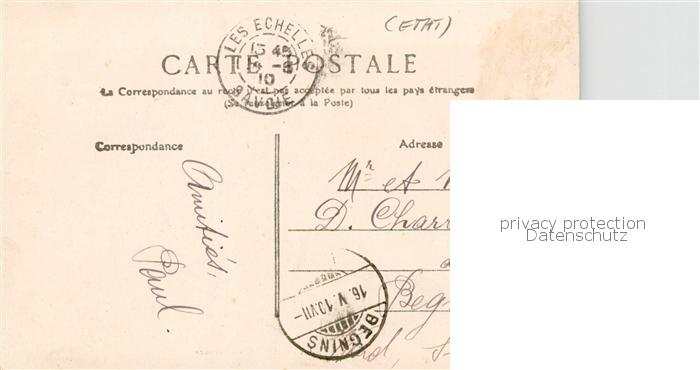 (ETAT)
LES ECHELLES
13 45
10
SAVOIE
CARTE POSTALE
La Correspondance au recto n'est pas acceptée par tous les pays étrangers
(Se renseigner à la Poste)
Correspondance
Adresse
Amitiés,
Paul.
Mr et
D. Charr
Beg
16.V.10.VII-
BEGNINS
privacy protection
Datenschutz